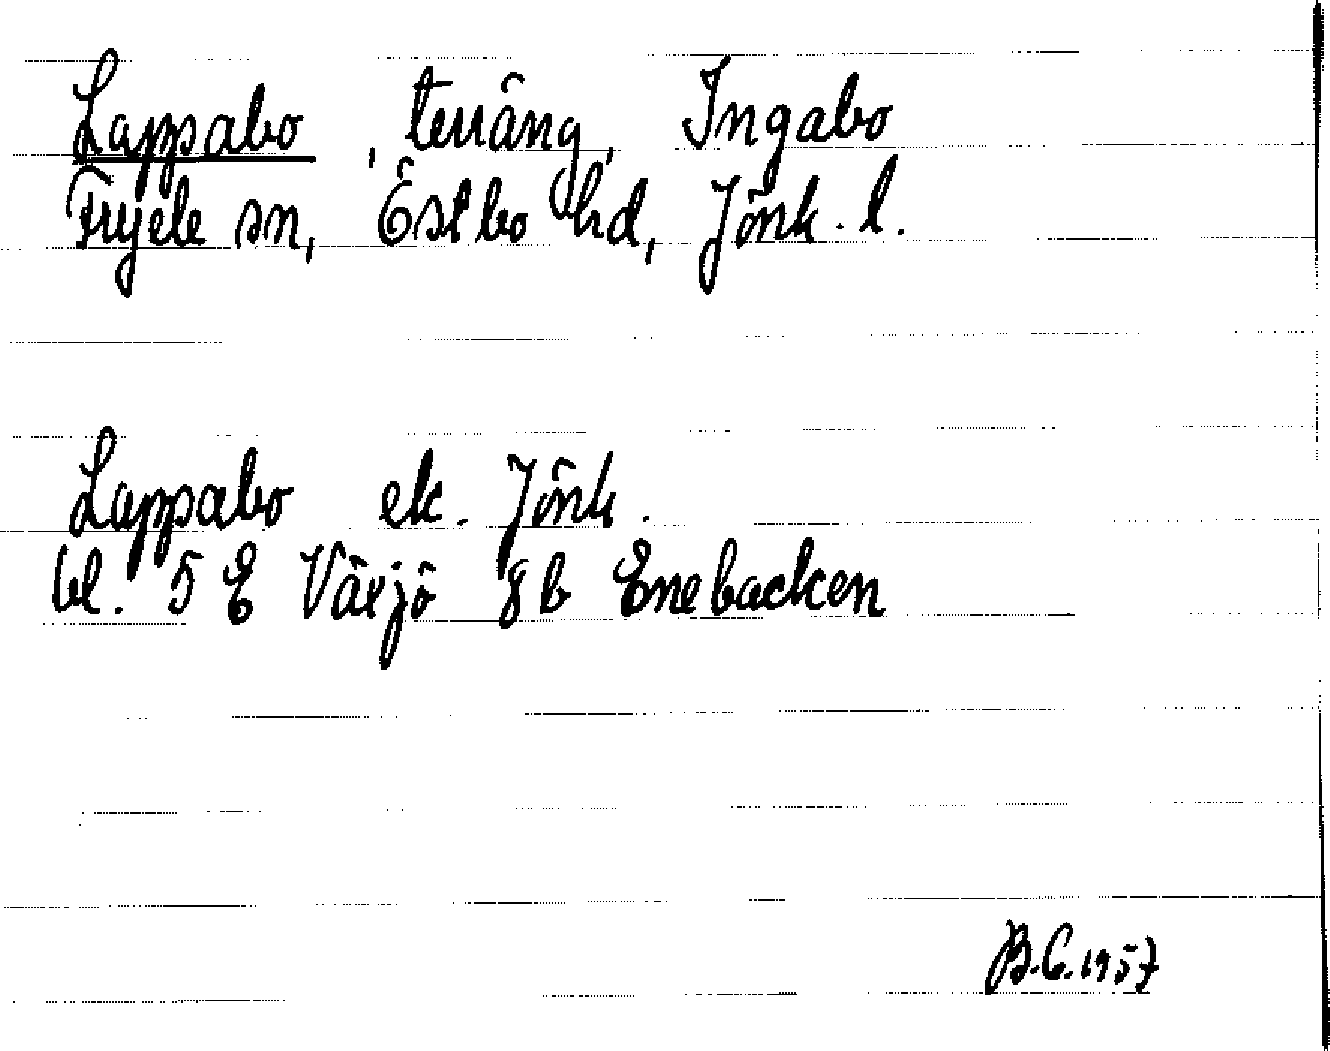 Lappabo, terräng, Ingabo
Fryele sn, Östbo hd, Jönk. l.
Lappabo ek. Jönk.
bl. 5 E Växjö 8 b Enebacken
B.C. 1957